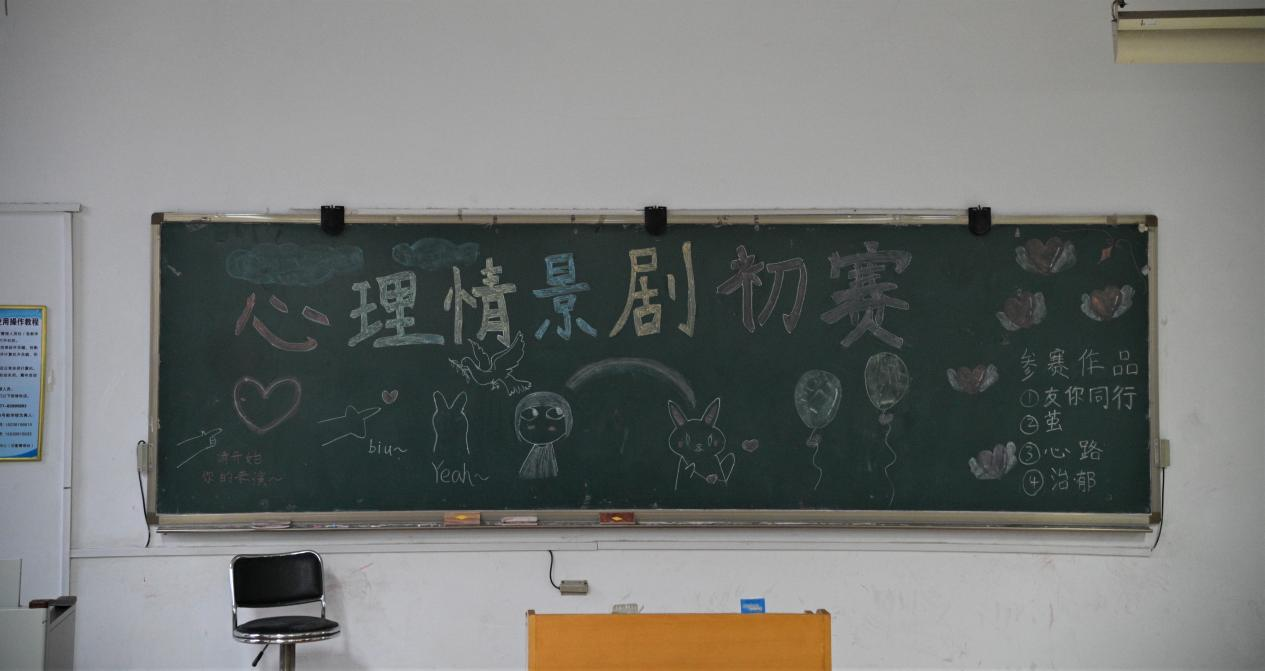 心理情景剧初赛
请开始
你的表演~
biu~
Yeah~
参赛作品
①友你同行
②茧
③心路
④治郁
使用操作教程